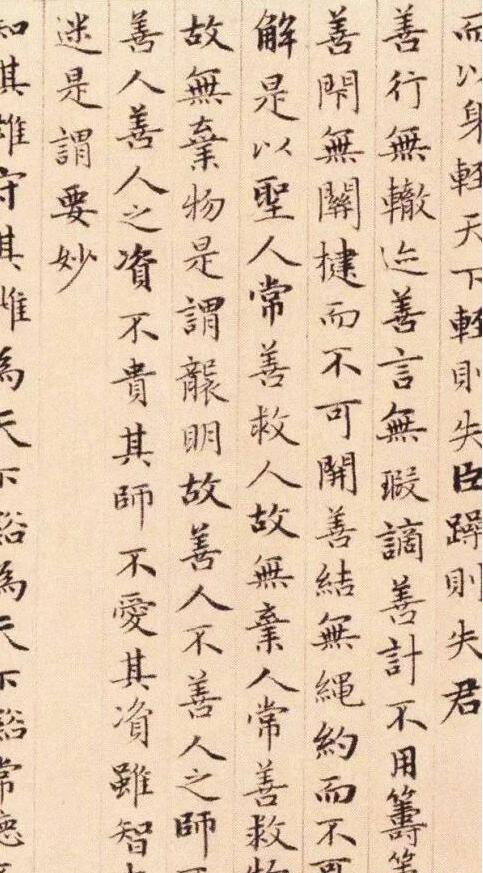 而以身輕天下輕則失臣躁則失君
善行無轍迹善言無瑕謫善計不用籌
善閇無關揵而不可開善結無繩約而不可
解是以聖人常善救人故無棄人常善救物
故無棄物是謂襲明故善人不善人之師
善人善人之資不貴其師不愛其資雖智
迷是謂要妙
知其雄守其雌為天下谿為天下谿常德